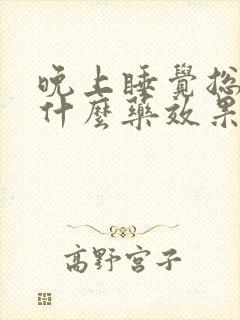 晚上睡覺總
什麼藥效果
高野宮子